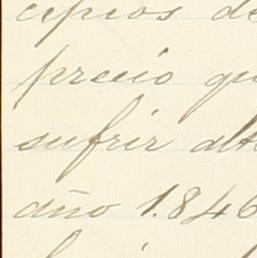 cipios de
precio qu
sufrir alte
año 1.846